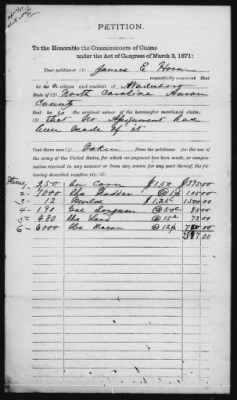 PETITION.
To the Honorable the Commissioners of Claims
under the Act of Congress of March 3, 1871:
Your petitioner (1) James E Horn
respectfully represents that
he is a citizen and resident of Wadesboro
North Carolina Anson
County
that he is the original owner of the hereinafter mentioned claim;
(2) that no assignment had
been made of it
that there were (3) Taken from the petitioner for the use of
the army of the United States, for which no payment has been made, or compen-
sation received in any manner or from any source for any part thereof, the fol-
lowing described supplies, viz: (4)
Items
250 bu Corn $1.50 $375.00
2- 7000 lbs Fodder
3- 12 $1.25 1500.00
4- 190 Gal Sorghum @ 50c 95.00
5- 480 lbs Lard @ 15c 72.00
6- 6000 lbs Bacon